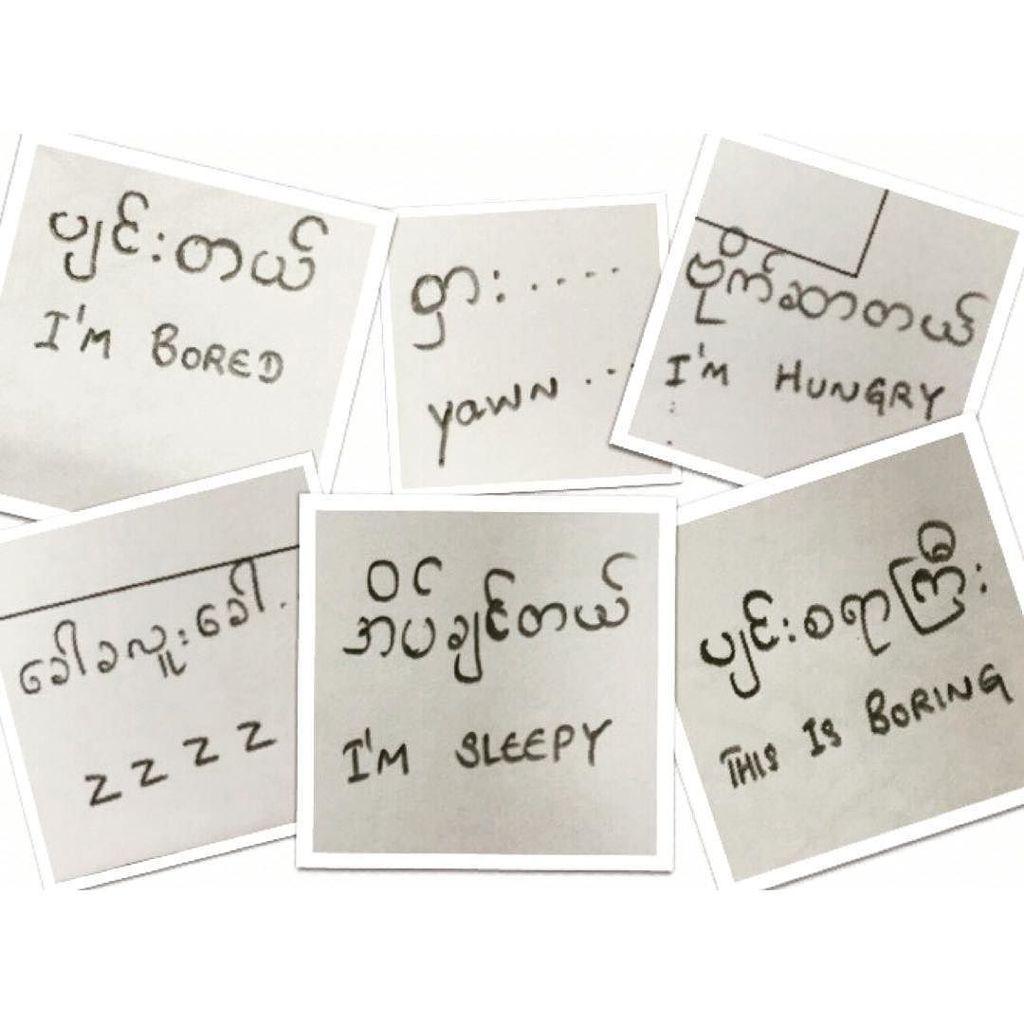 ပျင်းတယ်
I'M BORED
ဝှား.....
yawn ...
ဗိုက်ဆာတယ်
I'M HUNGRY
ခေါခလူးခေါ..
z z z z
အိပ်ချင်တယ်
I'M SLEEPY
ပျင်းစရာကြီး
THIS IS BORING